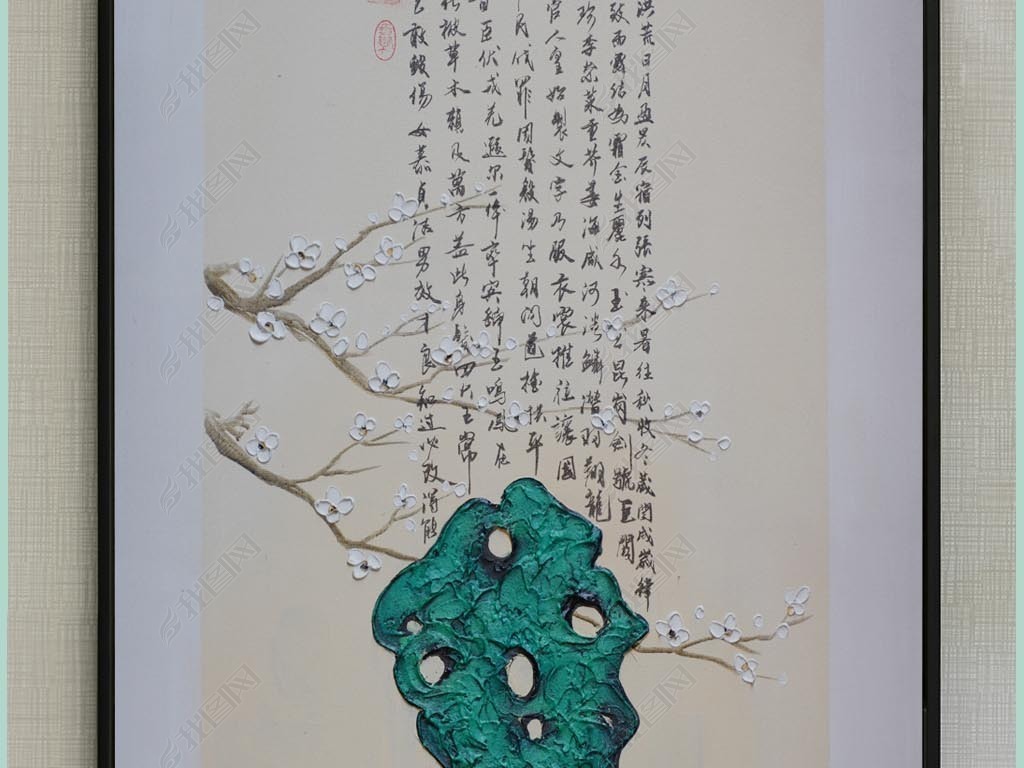 洪荒日月盈昃辰宿列张寒来暑往秋收冬藏闰成岁律
致雨露结为霜金生丽水玉出昆岗剑号巨阙
珍李柰菜重芥姜海咸河淡鳞潜羽翔龙
官人皇始製文字乃服衣裳推位讓國
民伐罪周發殷湯坐朝問道垂拱平
首臣伏戎羌遐尔一体率宾归王鳴鳳在
被草木賴及萬方蓋此身髮四大五常
敢毀傷女慕貞洁男效才良知过必改得能